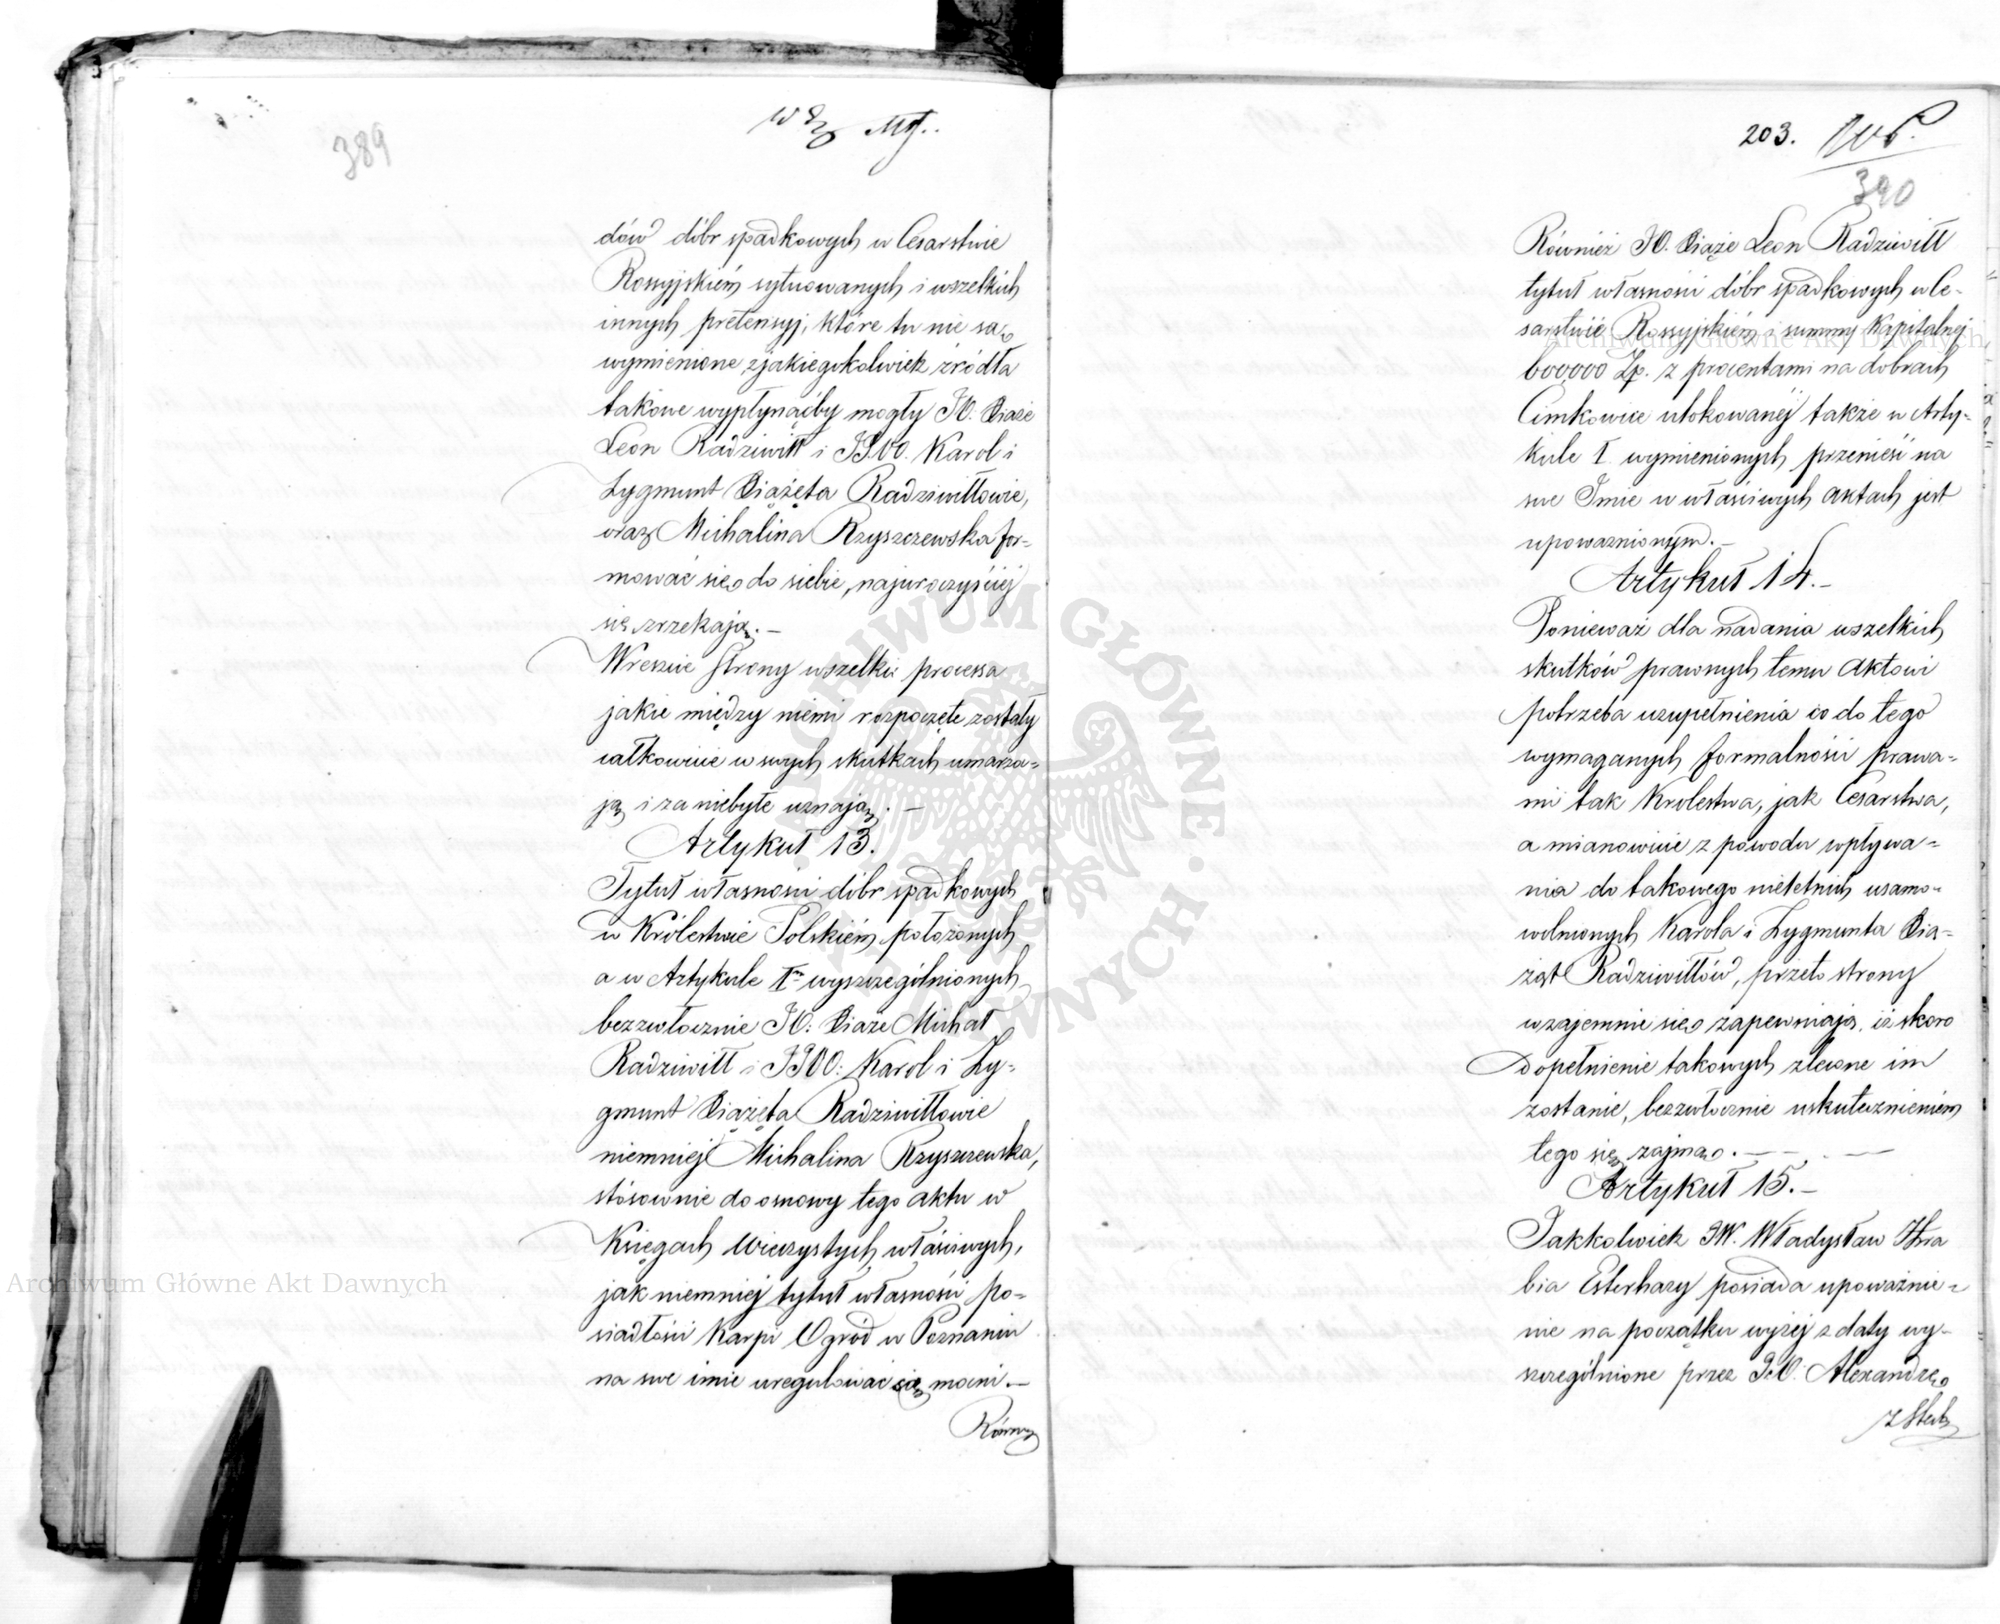 389
dów dóbr spadkowych w Cesarstwie
Rossyjskiém sytuowanych i wszelkich
innych pretensyj, które tu nie są
wymienione, z jakiegokolwiek źródła
takowe wypłynąćby mogły JO. Xiąże
Leon Radziwiłł i JJOO. Karol i
Zygmunt Xiążęta Radziwiłłowie,
oraz Michalina Rzyszczewska for-
mować się do siebie, najuroczyściéj
się zrzekają.—
Wreszcie strony wszelkie processa
jakie między niemi rozpoczęte zostały
całkowicie w swych skutkach umarza-
ją i za niebyłe uznają.—
Artykuł 13.
Tytuł własności dóbr spadkowych
w Królestwie Polskiém położonych
a w Artykule I wyszczególnionych
bezzwłocznie JO: Xiąże Michał
Radziwiłł i JJOO: Karol i Zy-
gmunt Xiążęta Radziwiłłowie
niemniej Michalina Rzyszczewska,
stósownie do osnowy tego aktu w
Księgach Wieczystych właściwych,
jak niemniej tytuł własności po-
siadłości Karpi Ogród w Poznaniu
na swe imie uregulować są mocni.—
203.
390
Również JO. Xiąże Leon Radziwiłł
tytuł własności dóbr spadkowych w Ce-
sarstwie Rossyjskiém i summy Kapitalnéj
600,000 Zp. z procentami na dobrach
Cimkowice ulokowanéj także w Arty-
kule I. wymienionych przenieść na
swe Imie w właściwych aktach jest
upoważnionym.—
Artykuł 14.—
Ponieważ dla nadania wszelkich
skutków prawnych temu Aktowi
potrzeba uzupełnienia co do tego
wymaganych formalności prawa-
mi tak Krolestwa, jak Cesarstwa,
a mianowicie z powodu wpływa-
nia do takowego nieletnich usamo-
wolnionych Karola i Zygmunta Xią-
żąt Radziwiłłów, przeto strony
wzajemnie się zapewniają, iż skoro
dopełnienie takowych zlecone im
zostanie, bezzwłocznie uskutecznieniem
tego się zajmą.— — —
Artykuł 15.—
Jakkolwiek JW. Władysław Hra
bia Esterhazy posiada upoważnie-
nie na początku wyżej z daty wy-
szczególnione przez J.O. Alexandrę
Archiwum Główne Akt Dawnych
Archiwum Główne Akt Dawnych
ARCHIWUM GŁÓWNE AKT DAWNYCH